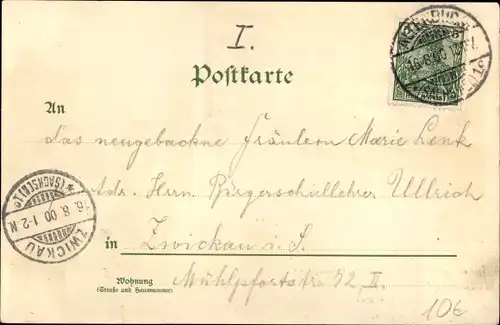 I.
Postkarte
An
das neugebackne Fräulein Marie Lenk
Adr. Herrn Bürgerschullehrer Ullrich
in Zwickau i. S.
Wohnung
(Straße und Hausnummer)
Mühlpfortstr. 52, II.
ZWICKAU
*(SACHSEN)*
16.8.00.1-2.N.
10€